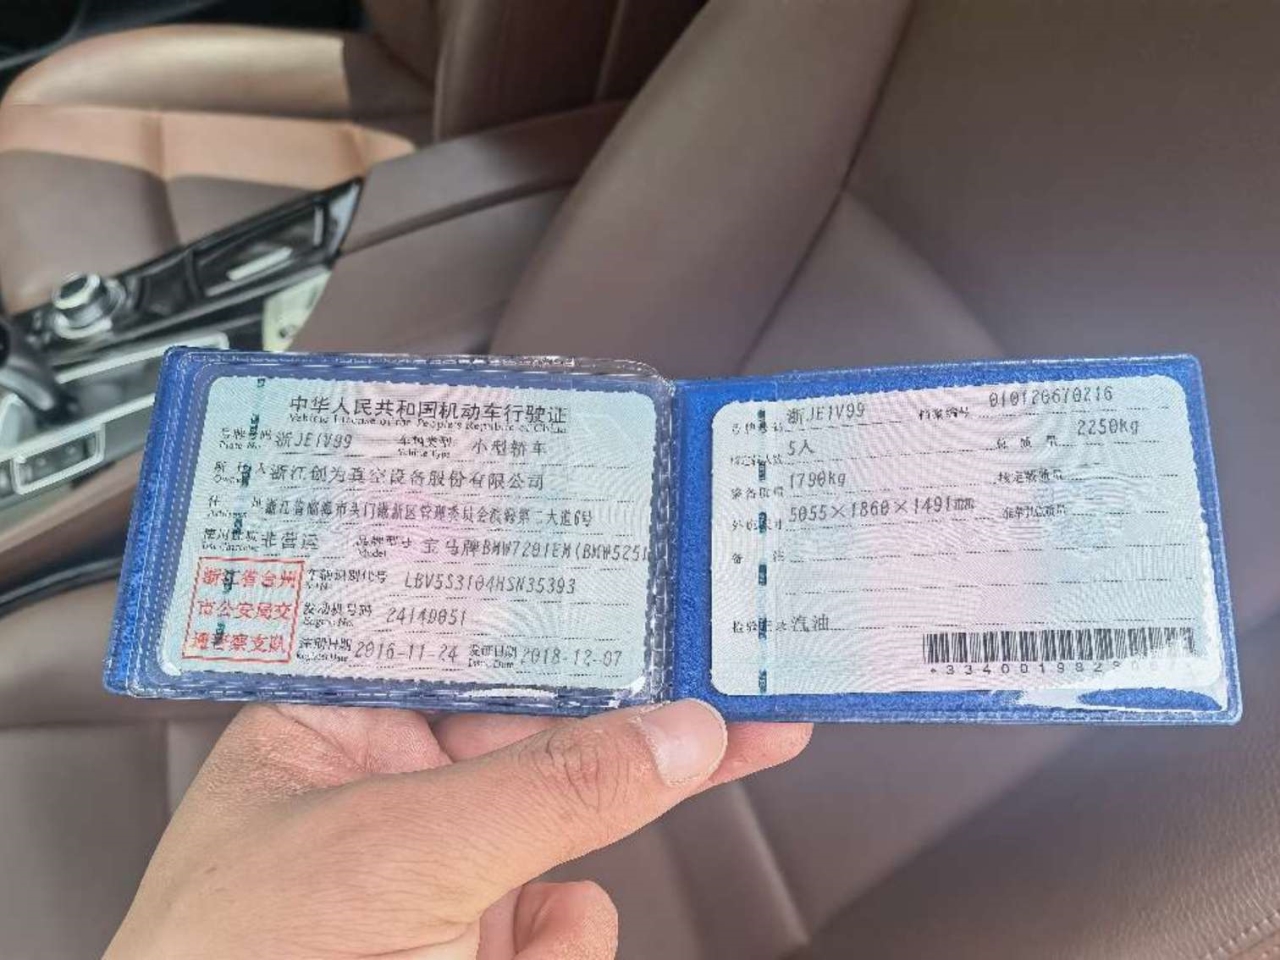 中华人民共和国机动车行驶证
Vehicle License of the People's Republic of China
号牌号码 浙JE1V99 车辆类型 小型轿车
Plate No. Vehicle Type
所有人 浙江创为真空设备股份有限公司
Owner
住 浙江省临海市头门港新区管理委员会 第二大道6号
使用性质 非营运 品牌型号 宝马牌BMW7201EM(BMW525l
Use Character Model
浙江省台州
市公安局交
通警察支队
车辆识别代号 LBV5S3104HSN35393
VIN
发动机号码 24140051
Engine No.
注册日期 2016-11-24 发证日期 2018-12-07
Register Date Issue Date
号牌号码 浙JE1V99 档案编号 010120670216
核定载人数 5人 总质量 2250kg
整备质量 1790kg 核定载质量
外廓尺寸 5055×1860×1491mm 准牵引总质量
备 注
检验记录 汽油